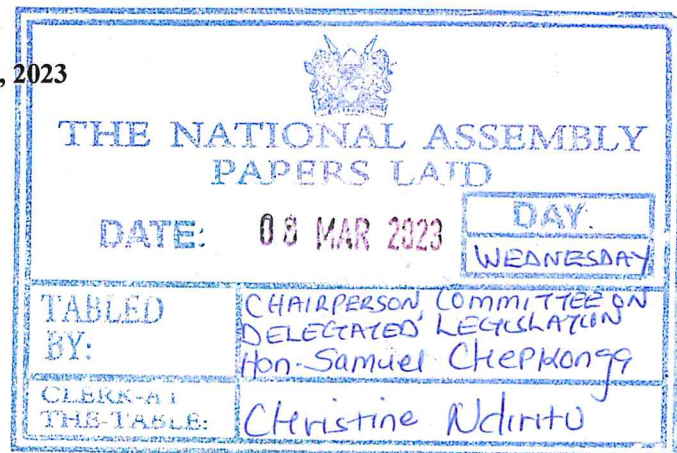 , 2023
THE NATIONAL ASSEMBLY
PAPERS LAID
DATE: 08 MAR 2023
DAY.
WEDNESDAY
TABLED BY:
CHAIRPERSON, COMMITTEE ON
DELEGATED LEGISLATION
Hon. Samuel Chepkonga
CLERK-AT
THE-TABLE:
Christine Ndiritu